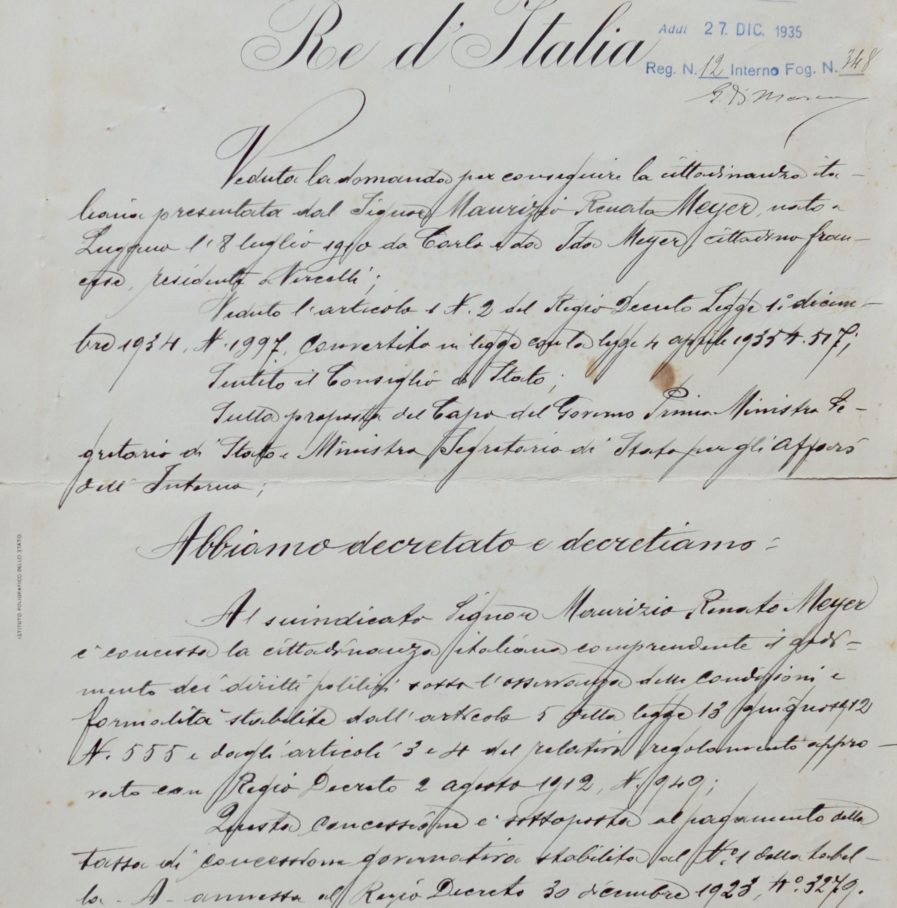 Re d'Italia
Addì 27. DIC. 1935
Reg. N. 12 Interno Fog. N. 348
Veduta la domanda per conseguire la cittadinanza ita-
liana presentata dal Signor Maurizio Renato Meyer, nato a
l'8 luglio 1910 da Carlo e da Ida Meyer, cittadino fran-
cese, residente a Vercelli;
Veduto l'articolo 1 N. 2 del Regio Decreto Legge 1º dicem-
bre 1934, N. 1997, convertito in legge con la legge 4 aprile 1935 N. 517;
Sentito il Consiglio di Stato;
Sulla proposta del Capo del Governo Primo Ministro Se-
gretario di Stato e Ministro Segretario di Stato per gli Affari
dell'Interno;
Abbiamo decretato e decretiamo:
Al suindicato Signor Maurizio Renato Meyer
è concessa la cittadinanza italiana comprendente il godi-
mento dei diritti politici sotto l'osservanza delle condizioni e
formalità stabilite dall'articolo 5 della legge 13 giugno 1912
N. 555 e dagli articoli 3 e 4 del relativo regolamento appro-
vato con Regio Decreto 2 agosto 1912, N. 949;
Questa concessione è sottoposta al pagamento della
tassa di concessione governativa stabilita al Nº 1 della tabel-
la - A - annessa al Regio Decreto 30 dicembre 1923, Nº 3279.
ISTITUTO POLIGRAFICO DELLO STATO